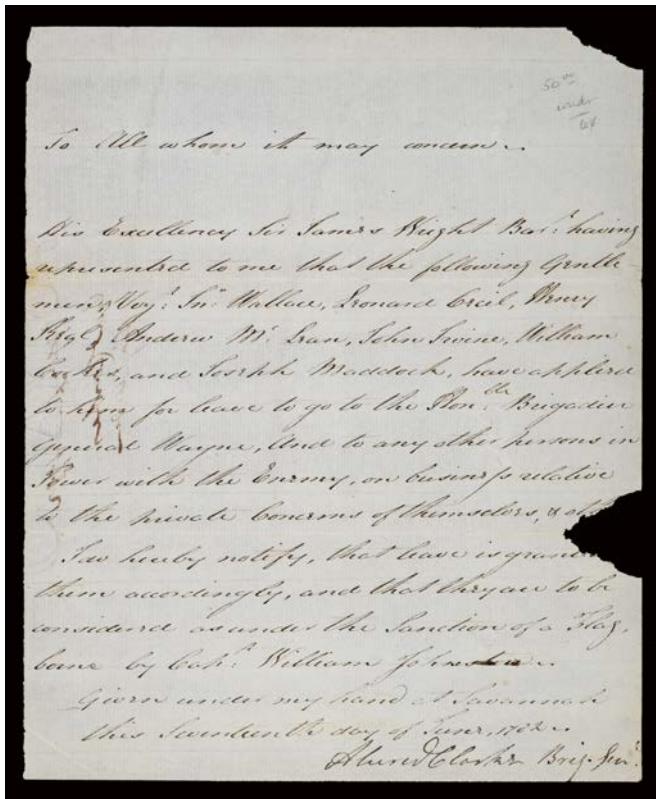 50.00
under
64
To All whom it may concern.
His Excellency Sir James Wright Bart. having
represented to me that the following Gentle-
men, Vizt. Jno. Wallace, Leonard Cecil, Henry
Andrew Mc. Lean, John Irvine, William
and Joseph Maddock, have applied
to him for leave to go to the Honble. Brigadier
General Wayne, And to any other persons in
Power with the Enemy, on business relative
to the private Concerns of themselves, &
I do hereby notify, that leave is
them accordingly, and that they are to be
considered as under the Sanction of a Flag,
borne by Capt. William Johnston.
Given under my hand at Savannah
this Seventeenth day of June, 1782.
Alured Clarke Brig. Genl.